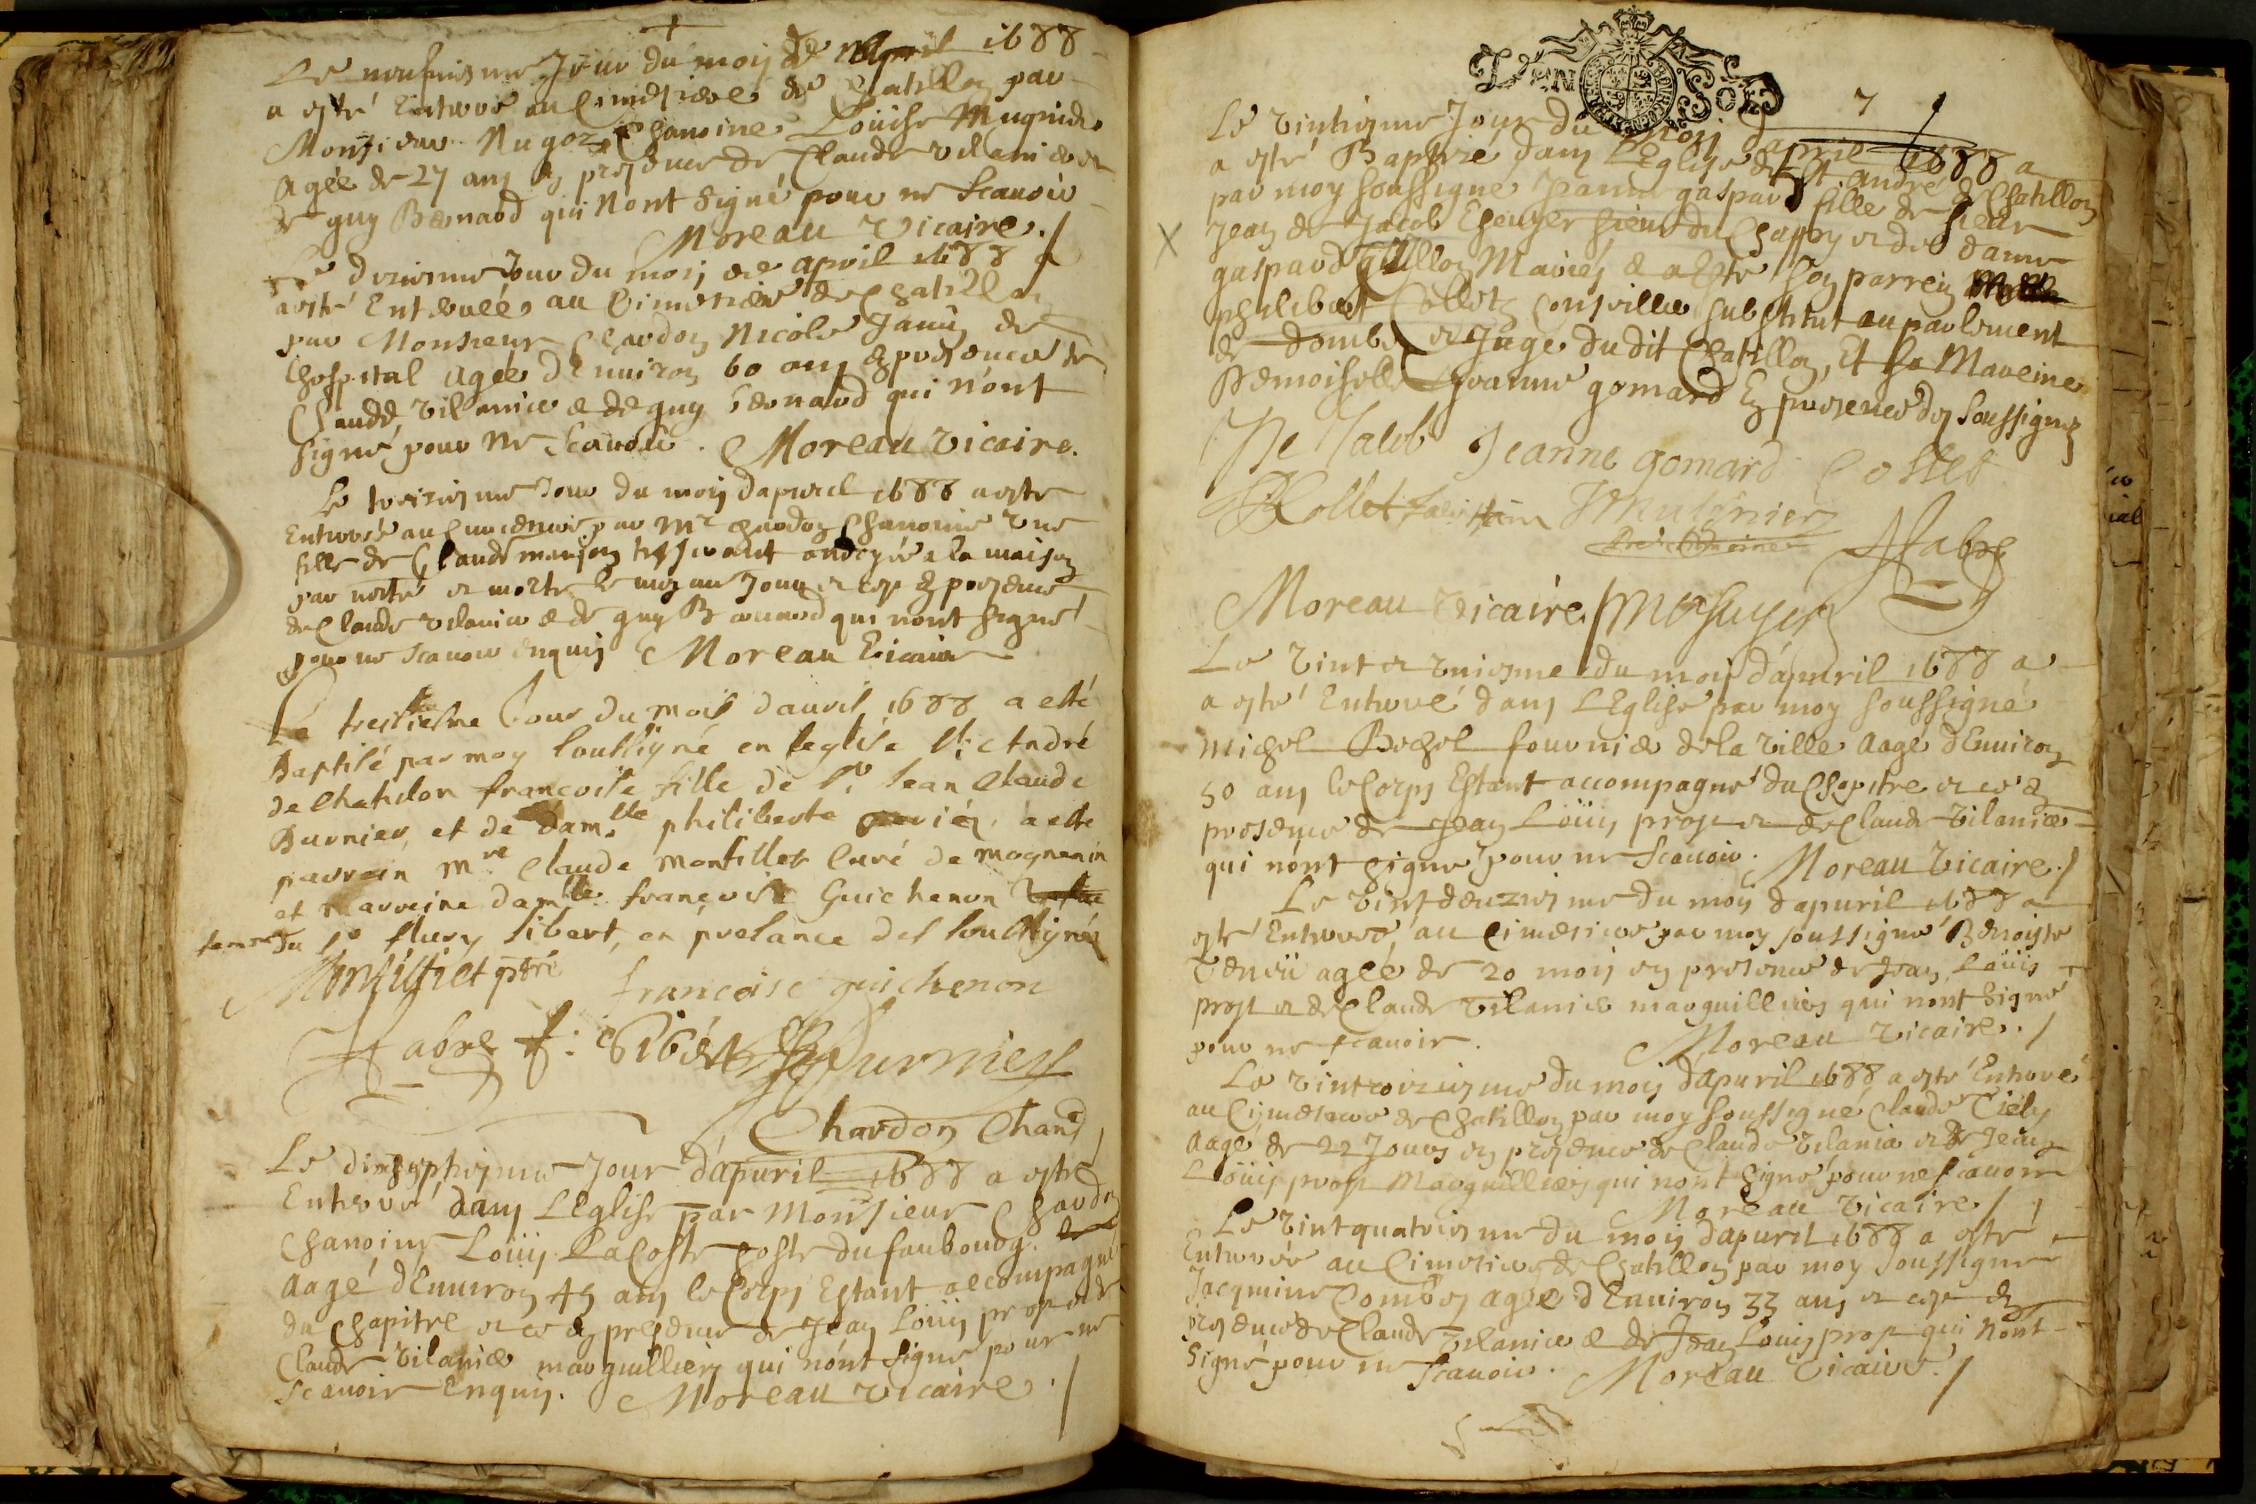 Le neufviesme Jour du mois de april 1688
a esté Enterré au Cimetiere de Chatillon par
Monsieur Nugoz Chanoine Louise Mugnier
Agée de 27 ans En presence de Claude vilanier et
de guy Bernard qui nont signé pour ne scavoir
Moreau vicaire
Le dixiesme Jour du mois de april 1688 a
esté Enterrée au Cimetiere de Chatillon
par Monsieur Chardon Nicole Janin de
hospital Agée dEnviron 60 ans En presence de
Claude vilanier & de guy bernard qui nont
signé pour ne scavoir. Moreau vicaire.
Le jour du mois dapvril 1688 a esté
Enterrée au Cimetiere par Mr chardon Chanoine une
fille de Claude ondoyée a la maison
par et morte le mesme Jour et ce En presence
de Claude vilanier & de guy Bernard qui nont signé
pour ne scavoir enquis Moreau vicaire
Le tresiesme Jour du mois dauril 1688 a esté
Baptisé par moy soussigné en leglise St André
de Chatillon francoise fille de Sr Jean Claude
Burnier, et de damlle philiberte a esté
parrain Mre Claude Montillet Curé de mognenin
et marreine damlle francoise Guichenon
femme du Sr fleury libert, en presance des soussignés
Montillet ptre francoise guichenon
Fabre f. libert Burnier
Chardon Chane
Le dixseptiesme Jour dapuril 1688 a esté
Enterré dans LEglise par Monsieur Chardon
Chanoine Loüis LaCoste hoste du faubourg
Aagé dEnviron 45 ans le Corps Estant accompagné
du Chapitre et ce En presence de Jean Loüis prost et de
Claude vilanier marguilliers qui nont signé pour ne
scavoir Enquis. Moreau vicaire.
7
Le vintiesme Jour du mois dapril 1688 a
a esté Baptizé dans LEglise de St André de Chatillon
par moy soussigné Janne gaspard fille de sieur
Jean de Jacob Escuyer sieur du Chappy et de dame
gaspard guillon Mariés & a Esté son parrein
philibert Collet Conseiller substitut au parlement
de dombe et Juge dudit Chatillon, Et sa Mareine
Demoiselle Jeanne gomard En presence des soussignés
De Jacob Jeanne gomard Collet
Kollet
Fabre
Moreau vicaire
Le vint et uniesme du mois dapuril 1688 a
a esté Enterré dans LEglise par moy soussigné
Michel Bochet fournier de la ville Aagé dEnviron
50 ans le Corps Estant accompagné du Chapitre et ce En
presence de Jean Loüis prost et de Claude vilanier
qui nont signé pour ne scavoir. Moreau vicaire.
Le vintdeuziesme du mois dapuril 1688 a
esté Enterrée au Cimetiere par moy soussigné Benoiste
agée de 20 mois en presence de Jean Loüis
prost et de Claude vilanier marguilliers qui nont signé
pour ne scavoir. Moreau vicaire.
Le vintroiziesme du mois dapuril 1688 a esté Enterré
au Cimetiere de Chatillon par moy soussigné Claude
Aagé de 22 Jours en presence de Claude vilanier et de Jean
Loüis prost Marguilliers qui nont signé pour ne scavoir
Moreau vicaire
Le vintquatriesme du mois dapuril 1688 a esté
Enterrée au Cimetiere de Chatillon par moy soussigné
Jacqmine Combes agée dEnviron 33 ans et ce En
presence de Claude vilanier & de Jean Louis prost qui nont
signé pour ne scavoir. Moreau vicaire.